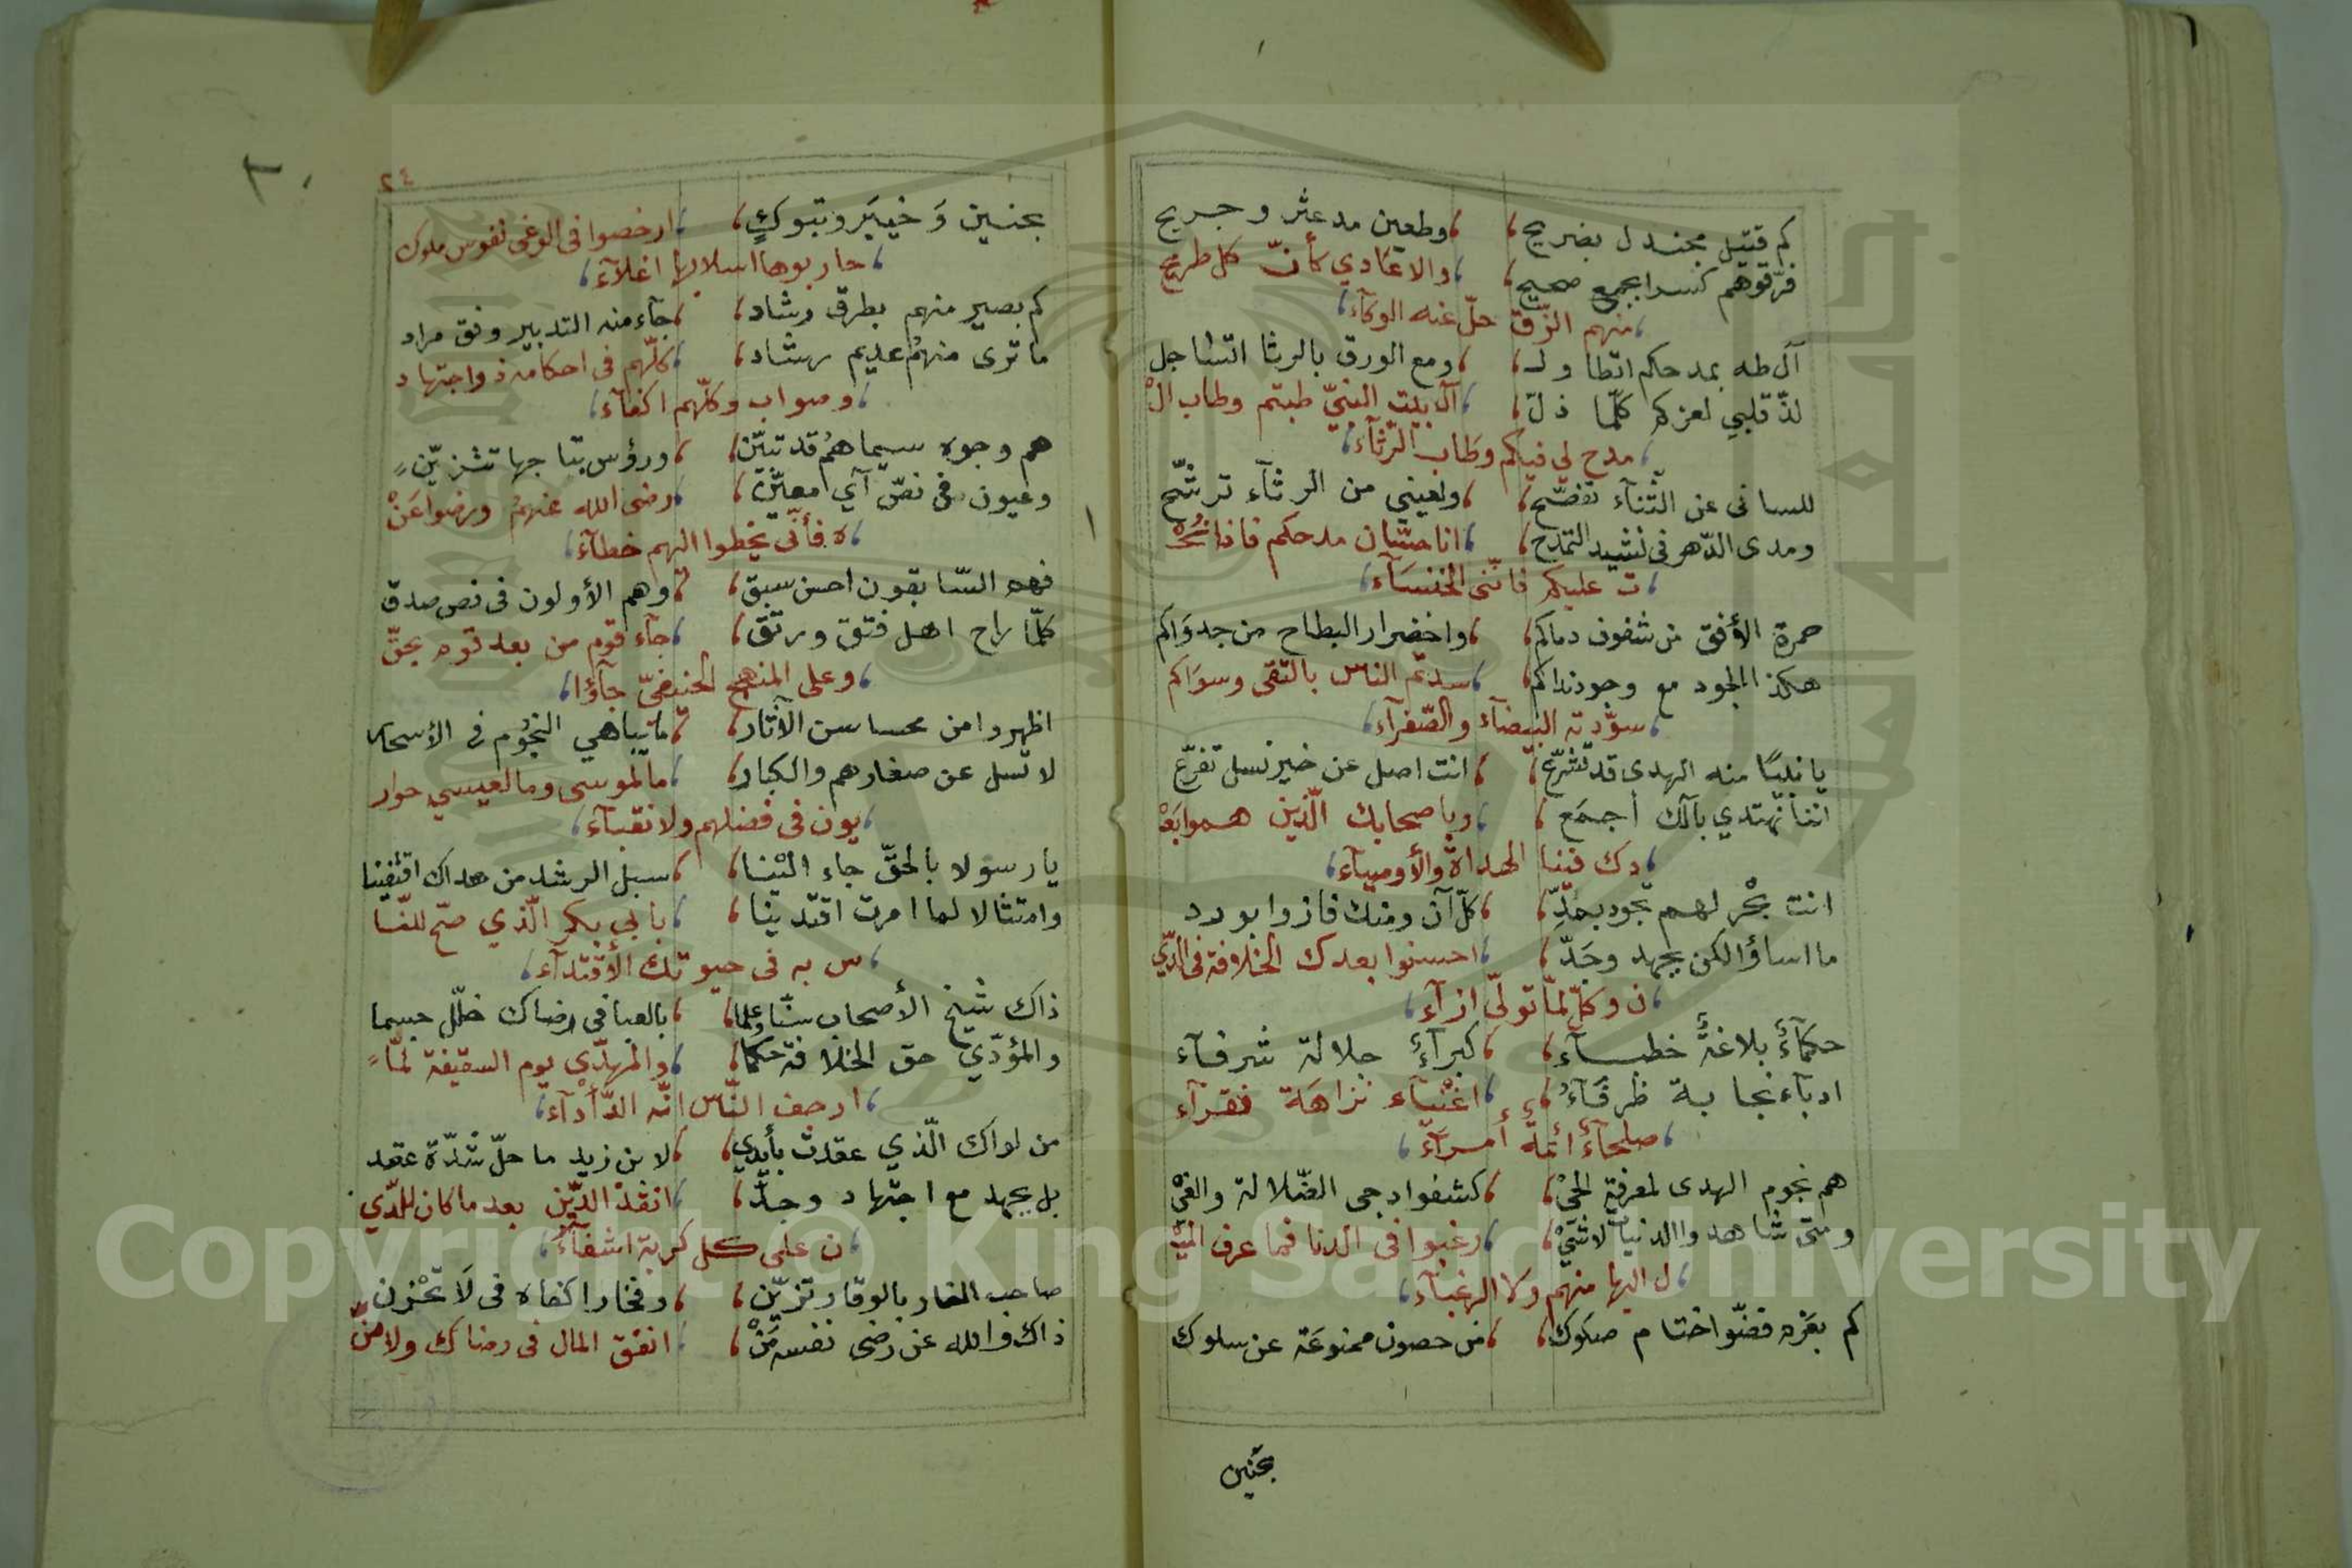 كم قتيل مجندل بضريح ، وطعين مدعثر وجريح
فرّقوهم كسرا بجمع صحيح ، والاعادي كأنّ كل طريح
منهم الزّق حلّ عنه الوكآء
آل طه بمدحكم اتطاول ، ومع الورق بالرثا اتساجل
لذّ قلبي لعزكم كلّما ذلّ ، آل بيت النبيّ طبتم وطاب الْ
مدح لي فيكم وطاب الرّثآء
للساني عن الثّنآء تفصّح ، ولعيني من الرثآء ترشّح
ومدى الدّهر في نشيد التمدّح ، انا حسّان مدحكم فاذا نُحْ
ت عليكم فانّني الخنسَآء
حمرة الأفق من شفوف دماكم ، واخضرار البطاح من جدوَاكم
هكذا الجود مع وجود نداكم ، سدتم الناس بالتقى وسوَاكم
سوّدته البيضآء والصّفرآء
يا نبيًا منه الهدى قد تشرّع ، انت اصل عن خير نسل تفرّع
اننا نهتدي بآلك أجمَع ، وباصحابك الّذين همو ابَعْ
دك فينا الهداة والأوصيآء
انت بحْر لهم تجود بمدِّ ، كلّ آن ومنك فازوا بورد
ما اساؤا لكن بجهد وجَدّ ، احسنوا بعدك الخلافة في الدّي
ن وكلّ لمّا تولّى ازآء
حكمآءٌ بلاغةً خطبآء ، كبرآءٌ جلالة شرفآء
ادبآء نجابة ظرفَآءُ ، اغْنيآء نزاهَة فقرآء
صلحآءٌ أئمة أمرَآء
هم نجوم الهدى لمعرفة الحيْ ، كشفوا دجى الضّلالة والغيّ
ومتى شاهدوا الدنيا لا شيْ ، رغبوا في الدنا فما عرف الميْ
ل اليها منهم ولا الرغبآء
كم بغزو فضّوا ختام صكوك ، من حصون ممنوعَة عن سلوك
بحنين
٢٤
٣٠
بحنين وَخيبَر وتبوكٍ ، ارخصوا في الوغى نفوس ملوك
حاربوها اسلابها اغلآء
كم بصير منهم بطرق رشاد ، جآء منه التدبير وفق مراد
ما ترى منهمُ عديم رشاد ، كلّهم في احكامه ذو اجتهاد
وصواب وكلّهم اكفآء
هم وجوه سيماهمُ قد تبيّن ، ورؤس بتاجها تتزيّن
وعيون في نصّ آي معيّن ، رضي الله عنهمُ ورضوا عَنْ
ه فأنّى يخطوا اليهم خطآء
فهم السّابقون احسن سبق ، وهم الأولون في نص صدق
كلّما راح اهل فتق ورتق ، جآء قوم من بعد قوم بحقّ
وعلى المنهج الحنيفيّ جآؤا
اظهروا من محاسن الآثار ، ما تباهي النجُوم في الأسحار
لا تسل عن صغارهم والكبار ، ما لموسى وما لعيسى حوار
يون في فضلهم ولا نقبآء
يا رسولا بالحقّ جاء الينا ، سبل الرشد من هداك اقتفينا
وامتثالا لما امرت اقتدينا ، بابي بكر الّذي صحّ للنّا
س به في حيوتك الأقتدآء
ذاك شيخ الأصحاب سنّا وعلما ، بالعبا في رضاك خلّل جسما
والمؤدّي حق الخلافة حكما ، والمهدّي يوم السقيفة لمّا
ارجف النّاس انّه الدّأدآء
من لواك الّذي عقدت بأيدي ، لابن زيد ما حلّ شدّة عقد
بل بجهد مع اجتهاد وجدّ ، انقذ الدّين بعد ما كان للدّي
ن على كل كربة اشفآء
صاحب الغار بالوقار تزيّن ، وفخارا كفاه في لَا تحْزن
ذاك والله عن رضى نفسه مَنْ ، انفق المال في رضاك ولا منّ
Copyright © King Saud University